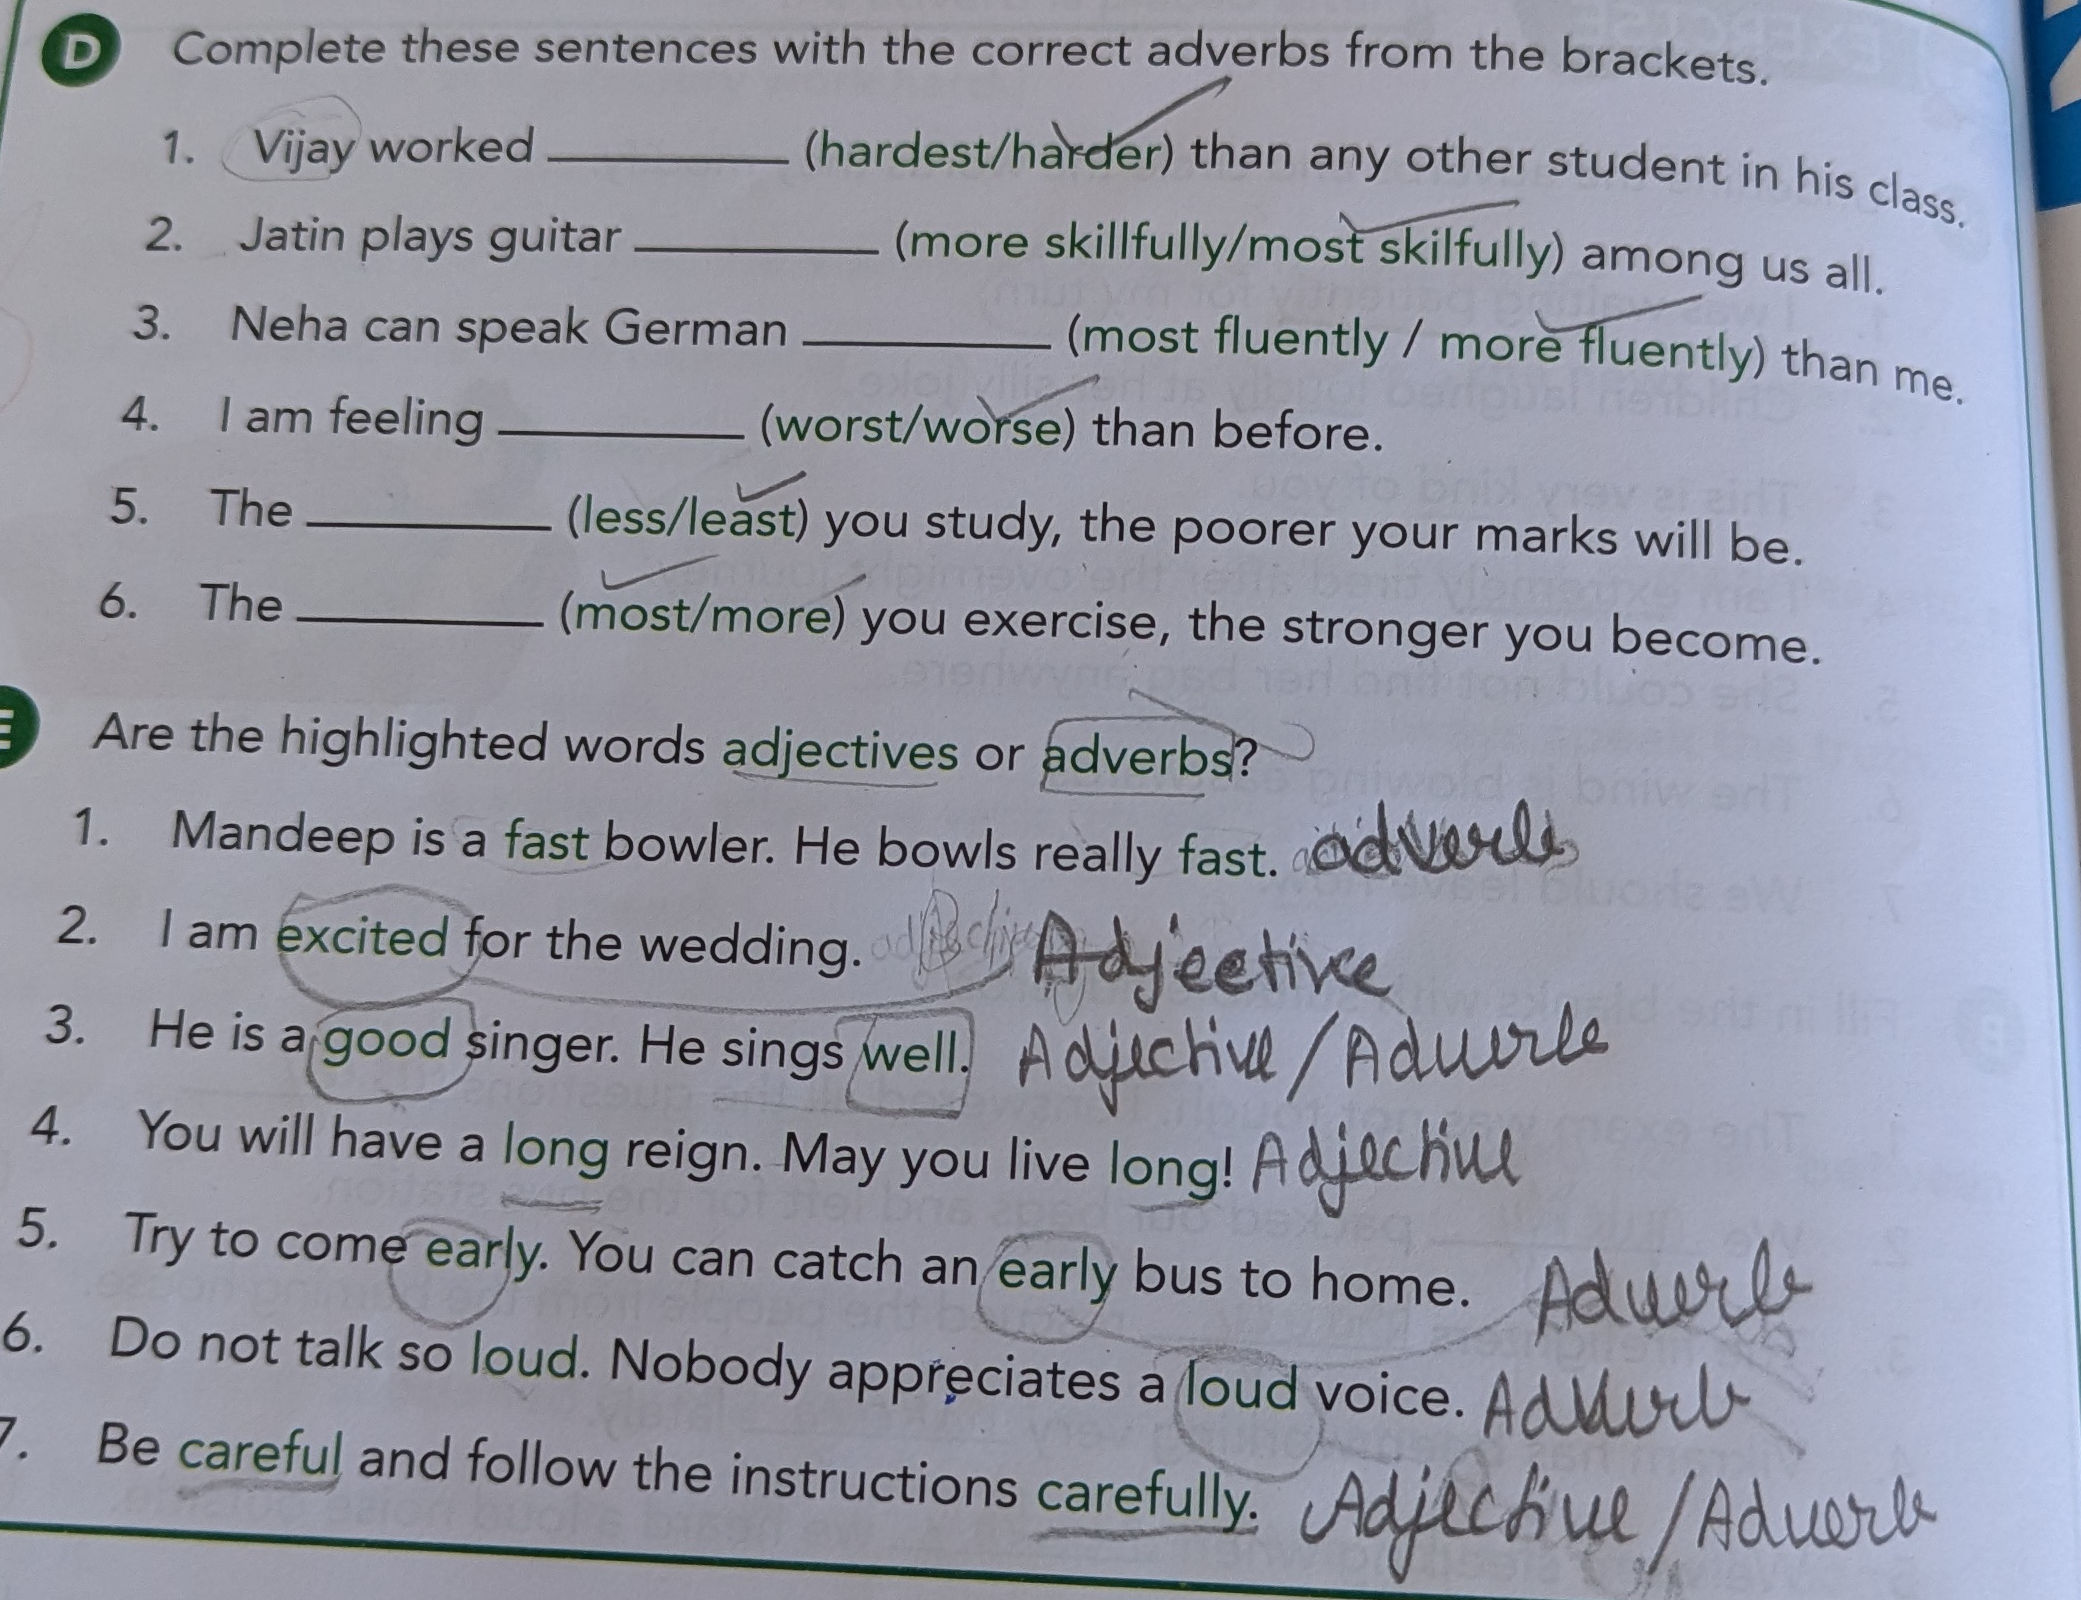 D Complete these sentences with the correct adverbs from the brackets.
1. Vijay worked __________ (hardest/harder) than any other student in his class.
2. Jatin plays guitar __________ (more skillfully/most skilfully) among us all.
3. Neha can speak German __________ (most fluently / more fluently) than me.
4. I am feeling __________ (worst/worse) than before.
5. The __________ (less/least) you study, the poorer your marks will be.
6. The __________ (most/more) you exercise, the stronger you become.
E Are the highlighted words adjectives or adverbs?
1. Mandeep is a fast bowler. He bowls really fast. adverb
2. I am excited for the wedding. Adjective
3. He is a good singer. He sings well. Adjective / Adverb
4. You will have a long reign. May you live long! Adjective
5. Try to come early. You can catch an early bus to home. Adverb
6. Do not talk so loud. Nobody appreciates a loud voice. Adverb
7. Be careful and follow the instructions carefully. Adjective / Adverb